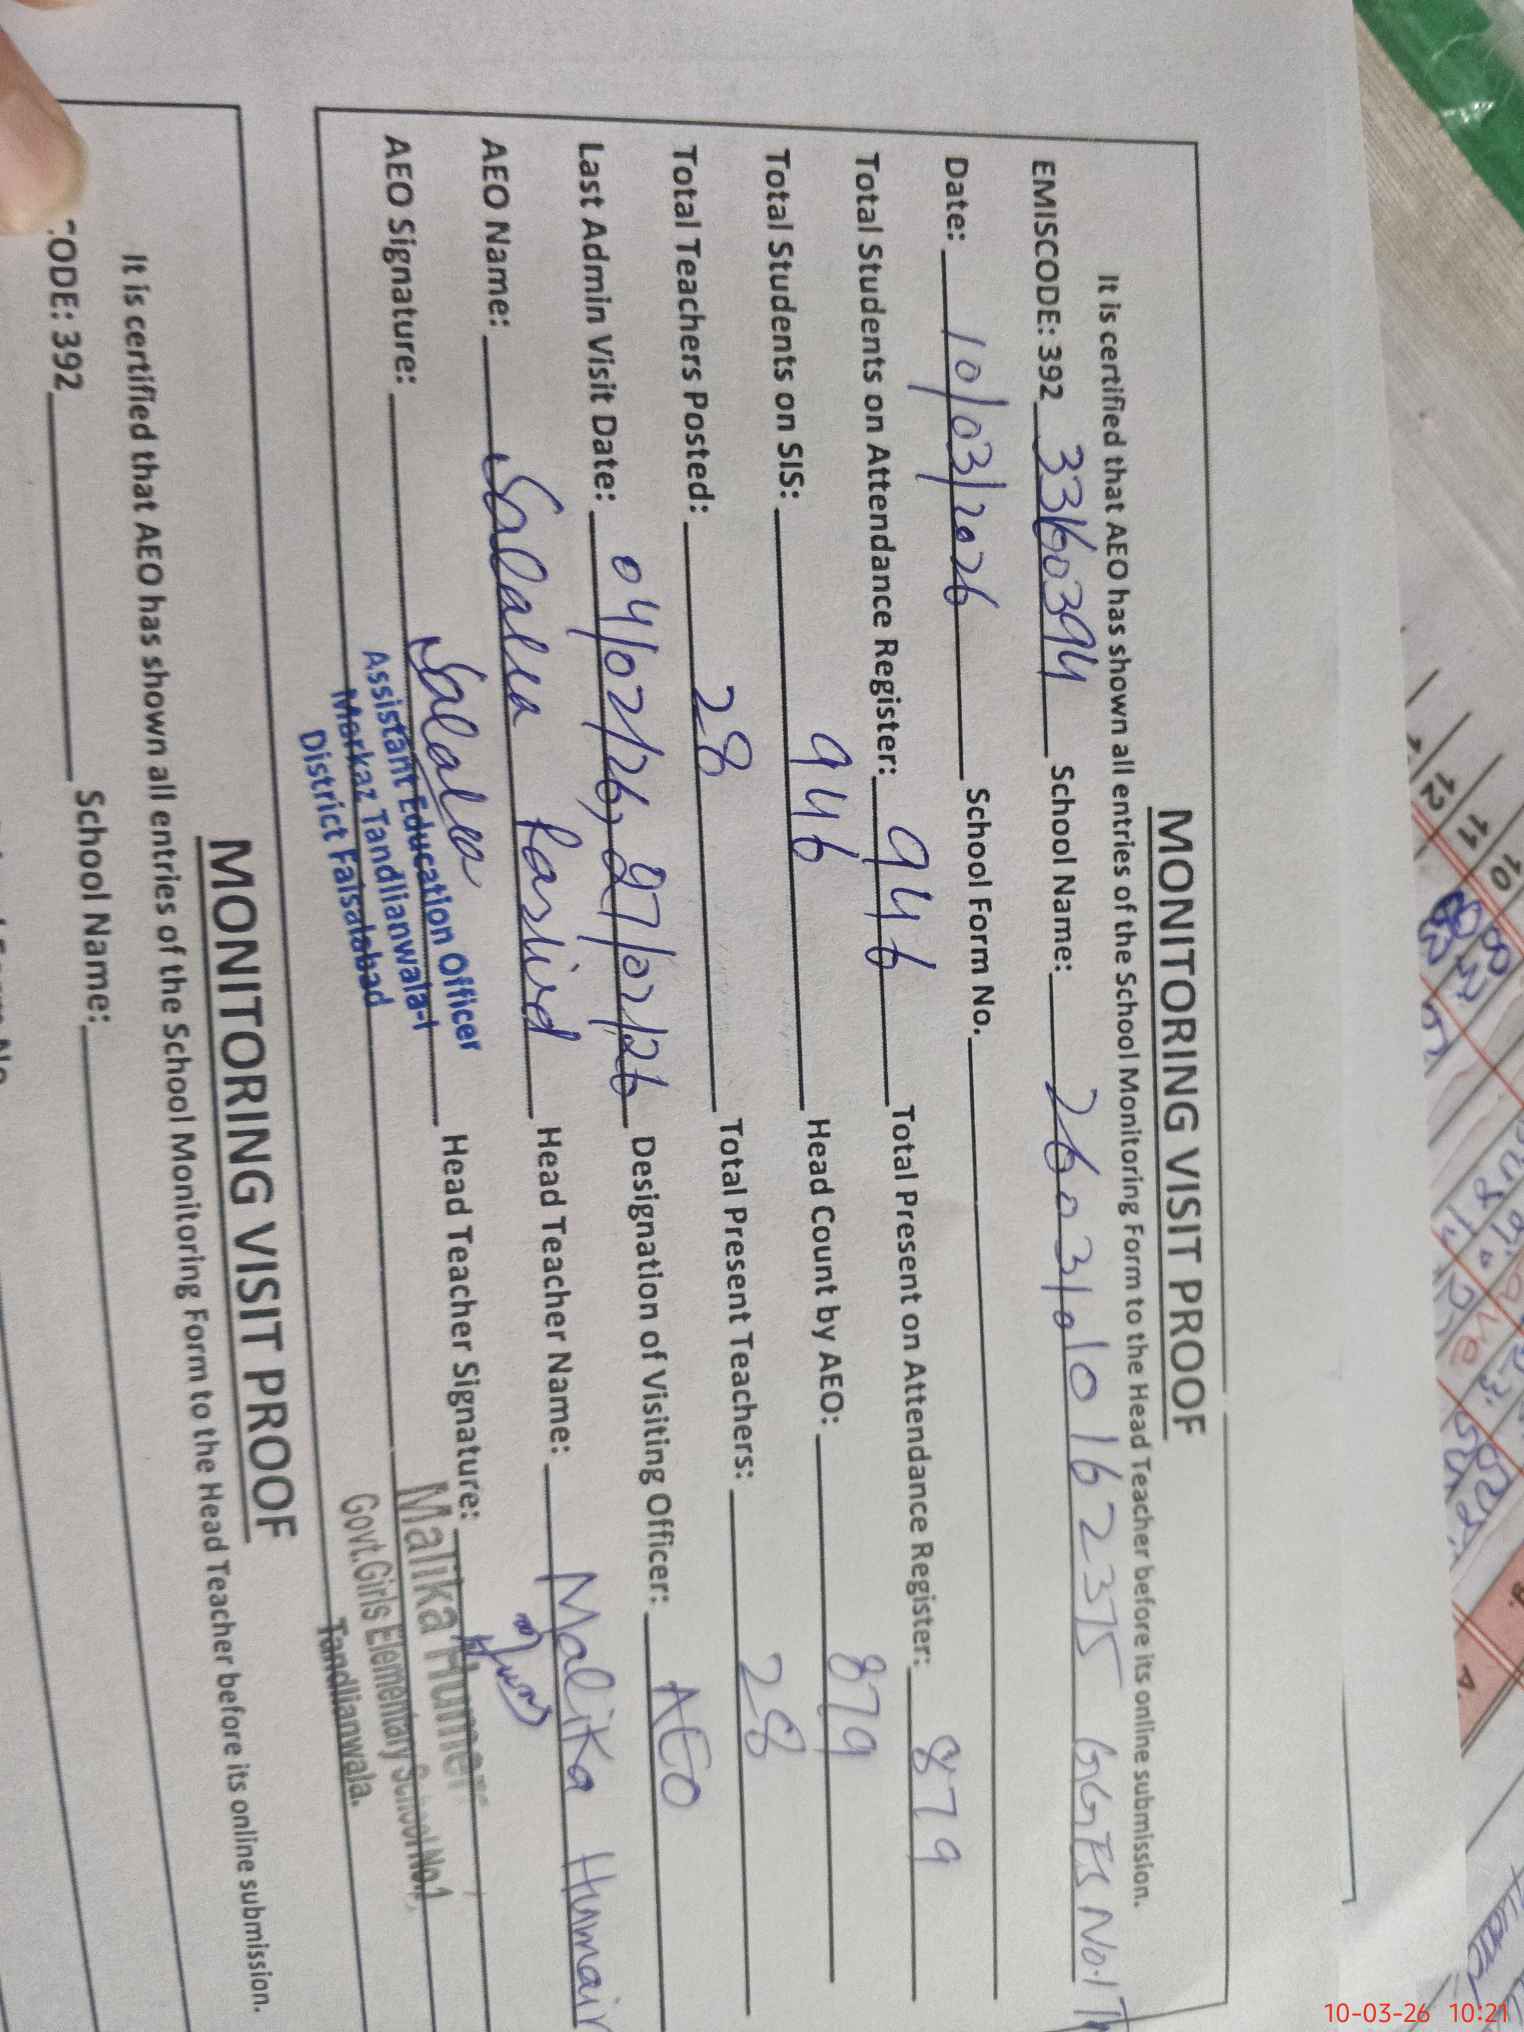 MONITORING VISIT PROOF
It is certified that AEO has shown all entries of the School Monitoring Form to the Head Teacher before its online submission.
EMISCODE: 392 33160394 School Name: 26031010162375 GGES No.1
Date: 10/03/2026 School Form No.
Total Students on Attendance Register: 946 Total Present on Attendance Register: 879
Total Students on SIS: 946 Head Count by AEO: 879
Total Teachers Posted: 28 Total Present Teachers: 28
Last Admin Visit Date: 04/02/26, 27/02/26 Designation of Visiting Officer: AEO
AEO Name: Head Teacher Name: Malika Humair
AEO Signature: Head Teacher Signature:
Assistant Education Officer
Markaz Tandlianwala-I
District Faisalabad
Malika Humer
Govt.Girls Elementary School No.1,
Tandlianwala.
MONITORING VISIT PROOF
It is certified that AEO has shown all entries of the School Monitoring Form to the Head Teacher before its online submission.
CODE: 392 School Name:
10
11
12
10-03-26 10:21